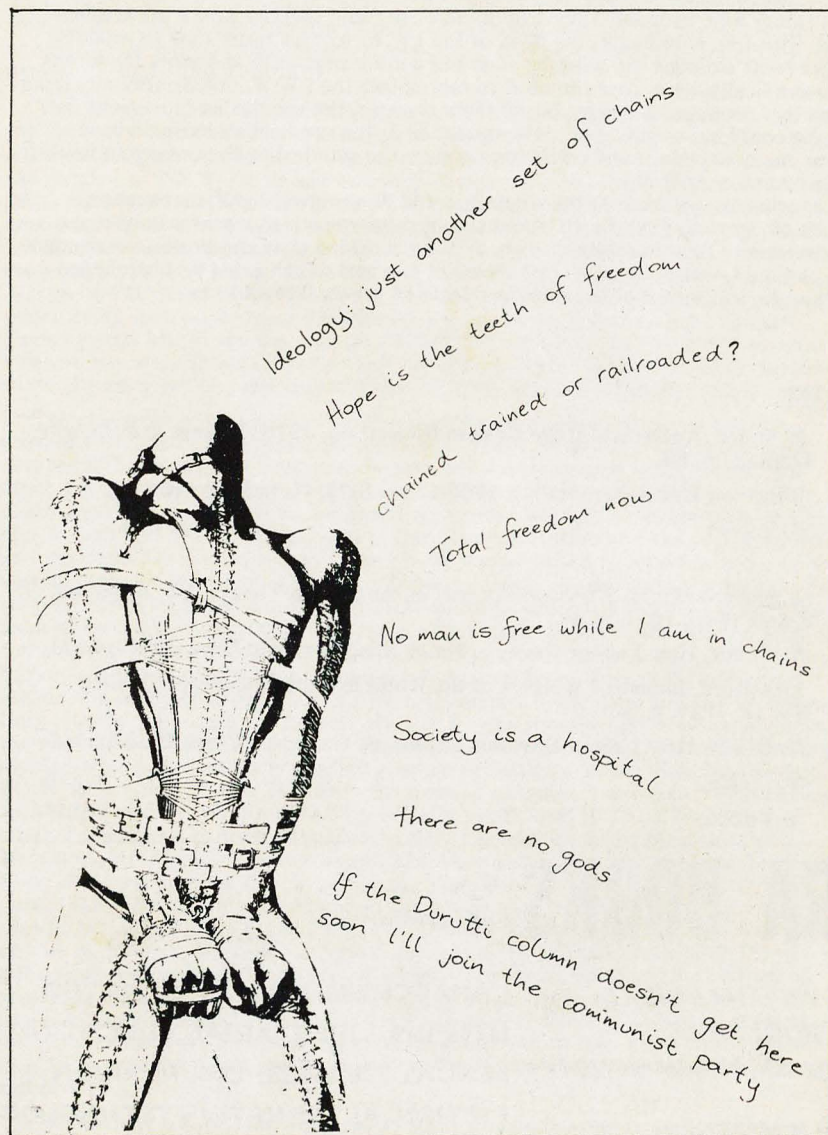 Ideology: just another set of chains
Hope is the teeth of freedom
chained trained or railroaded?
Total freedom now
No man is free while I am in chains
Society is a hospital
there are no gods
If the Durutti column doesn't get here
soon I'll join the communist party